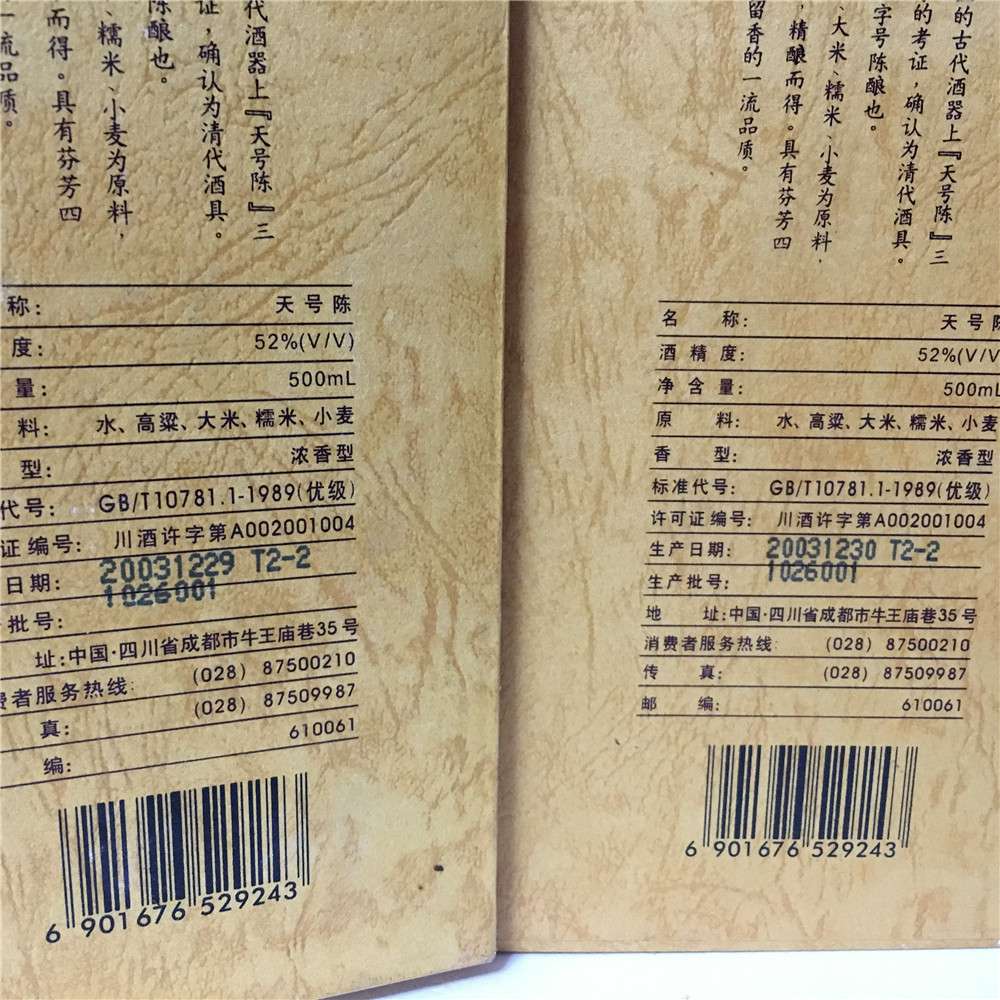 代酒器上『天号陈』三
证，确认为清代酒具。
陈酿也。
糯米、小麦为原料，
而得。具有芬芳四
一流品质。
称： 天号陈
度： 52%(V/V)
量： 500mL
料： 水、高粱、大米、糯米、小麦
型： 浓香型
代号： GB/T10781.1-1989(优级)
证编号： 川酒许字第A002001004
日期： 20031229 T2-2
1026001
批号：
址：中国·四川省成都市牛王庙巷35号
费者服务热线： (028) 87500210
真： (028) 87509987
编： 610061
6 901676 529243
的古代酒器上『天号陈』三
的考证，确认为清代酒具。
字号陈酿也。
、大米、糯米、小麦为原料，
，精酿而得。具有芬芳四
留香的一流品质。
名称： 天号陈
酒精度： 52%(V/V
净含量： 500mL
原料： 水、高粱、大米、糯米、小麦
香型： 浓香型
标准代号： GB/T10781.1-1989(优级)
许可证编号： 川酒许字第A002001004
生产日期： 20031230 T2-2
1026001
生产批号：
地址：中国·四川省成都市牛王庙巷35号
消费者服务热线： (028) 87500210
传真： (028) 87509987
邮编： 610061
6 901676 529243